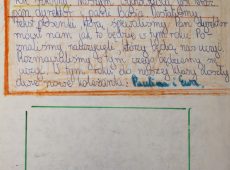 pan dyrektor i pani Basia
tekst piosenki którą śpiewaliśmy. Pan dyrektor
mówił nam jak to będzie w tym roku. Po
znaliśmy nauczycieli którzy będą nas uczyć.
Rozmawialiśmy o tym czego będziemy się
uczyć. W tym roku do naszej klasy doszły
dwie nowe koleżanki: Paulina i Ewa.